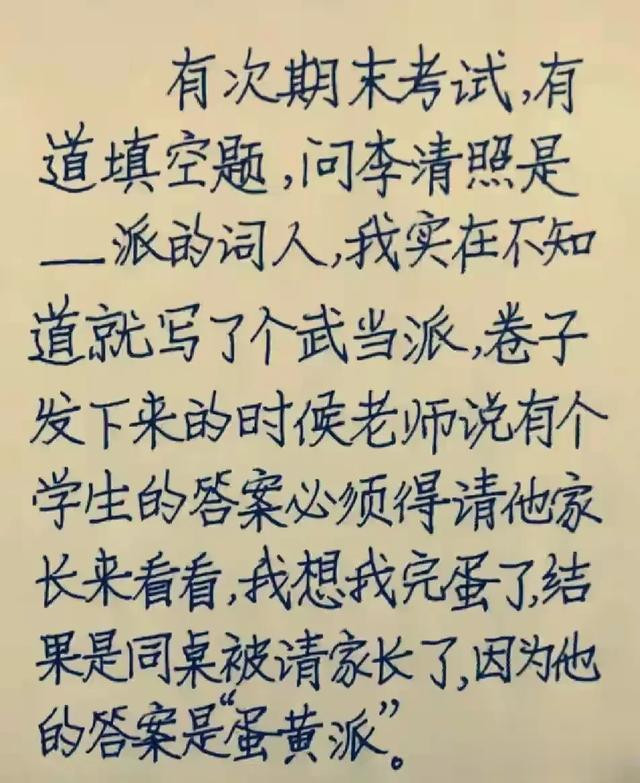 有次期末考试,有
道填空题,问李清照是
__派的词人,我实在不知
道就写了个武当派,卷子
发下来的时候老师说有个
学生的答案必须得请他家
长来看看,我想我完蛋了,结
果是同桌被请家长了,因为他
的答案是“蛋黄派”。